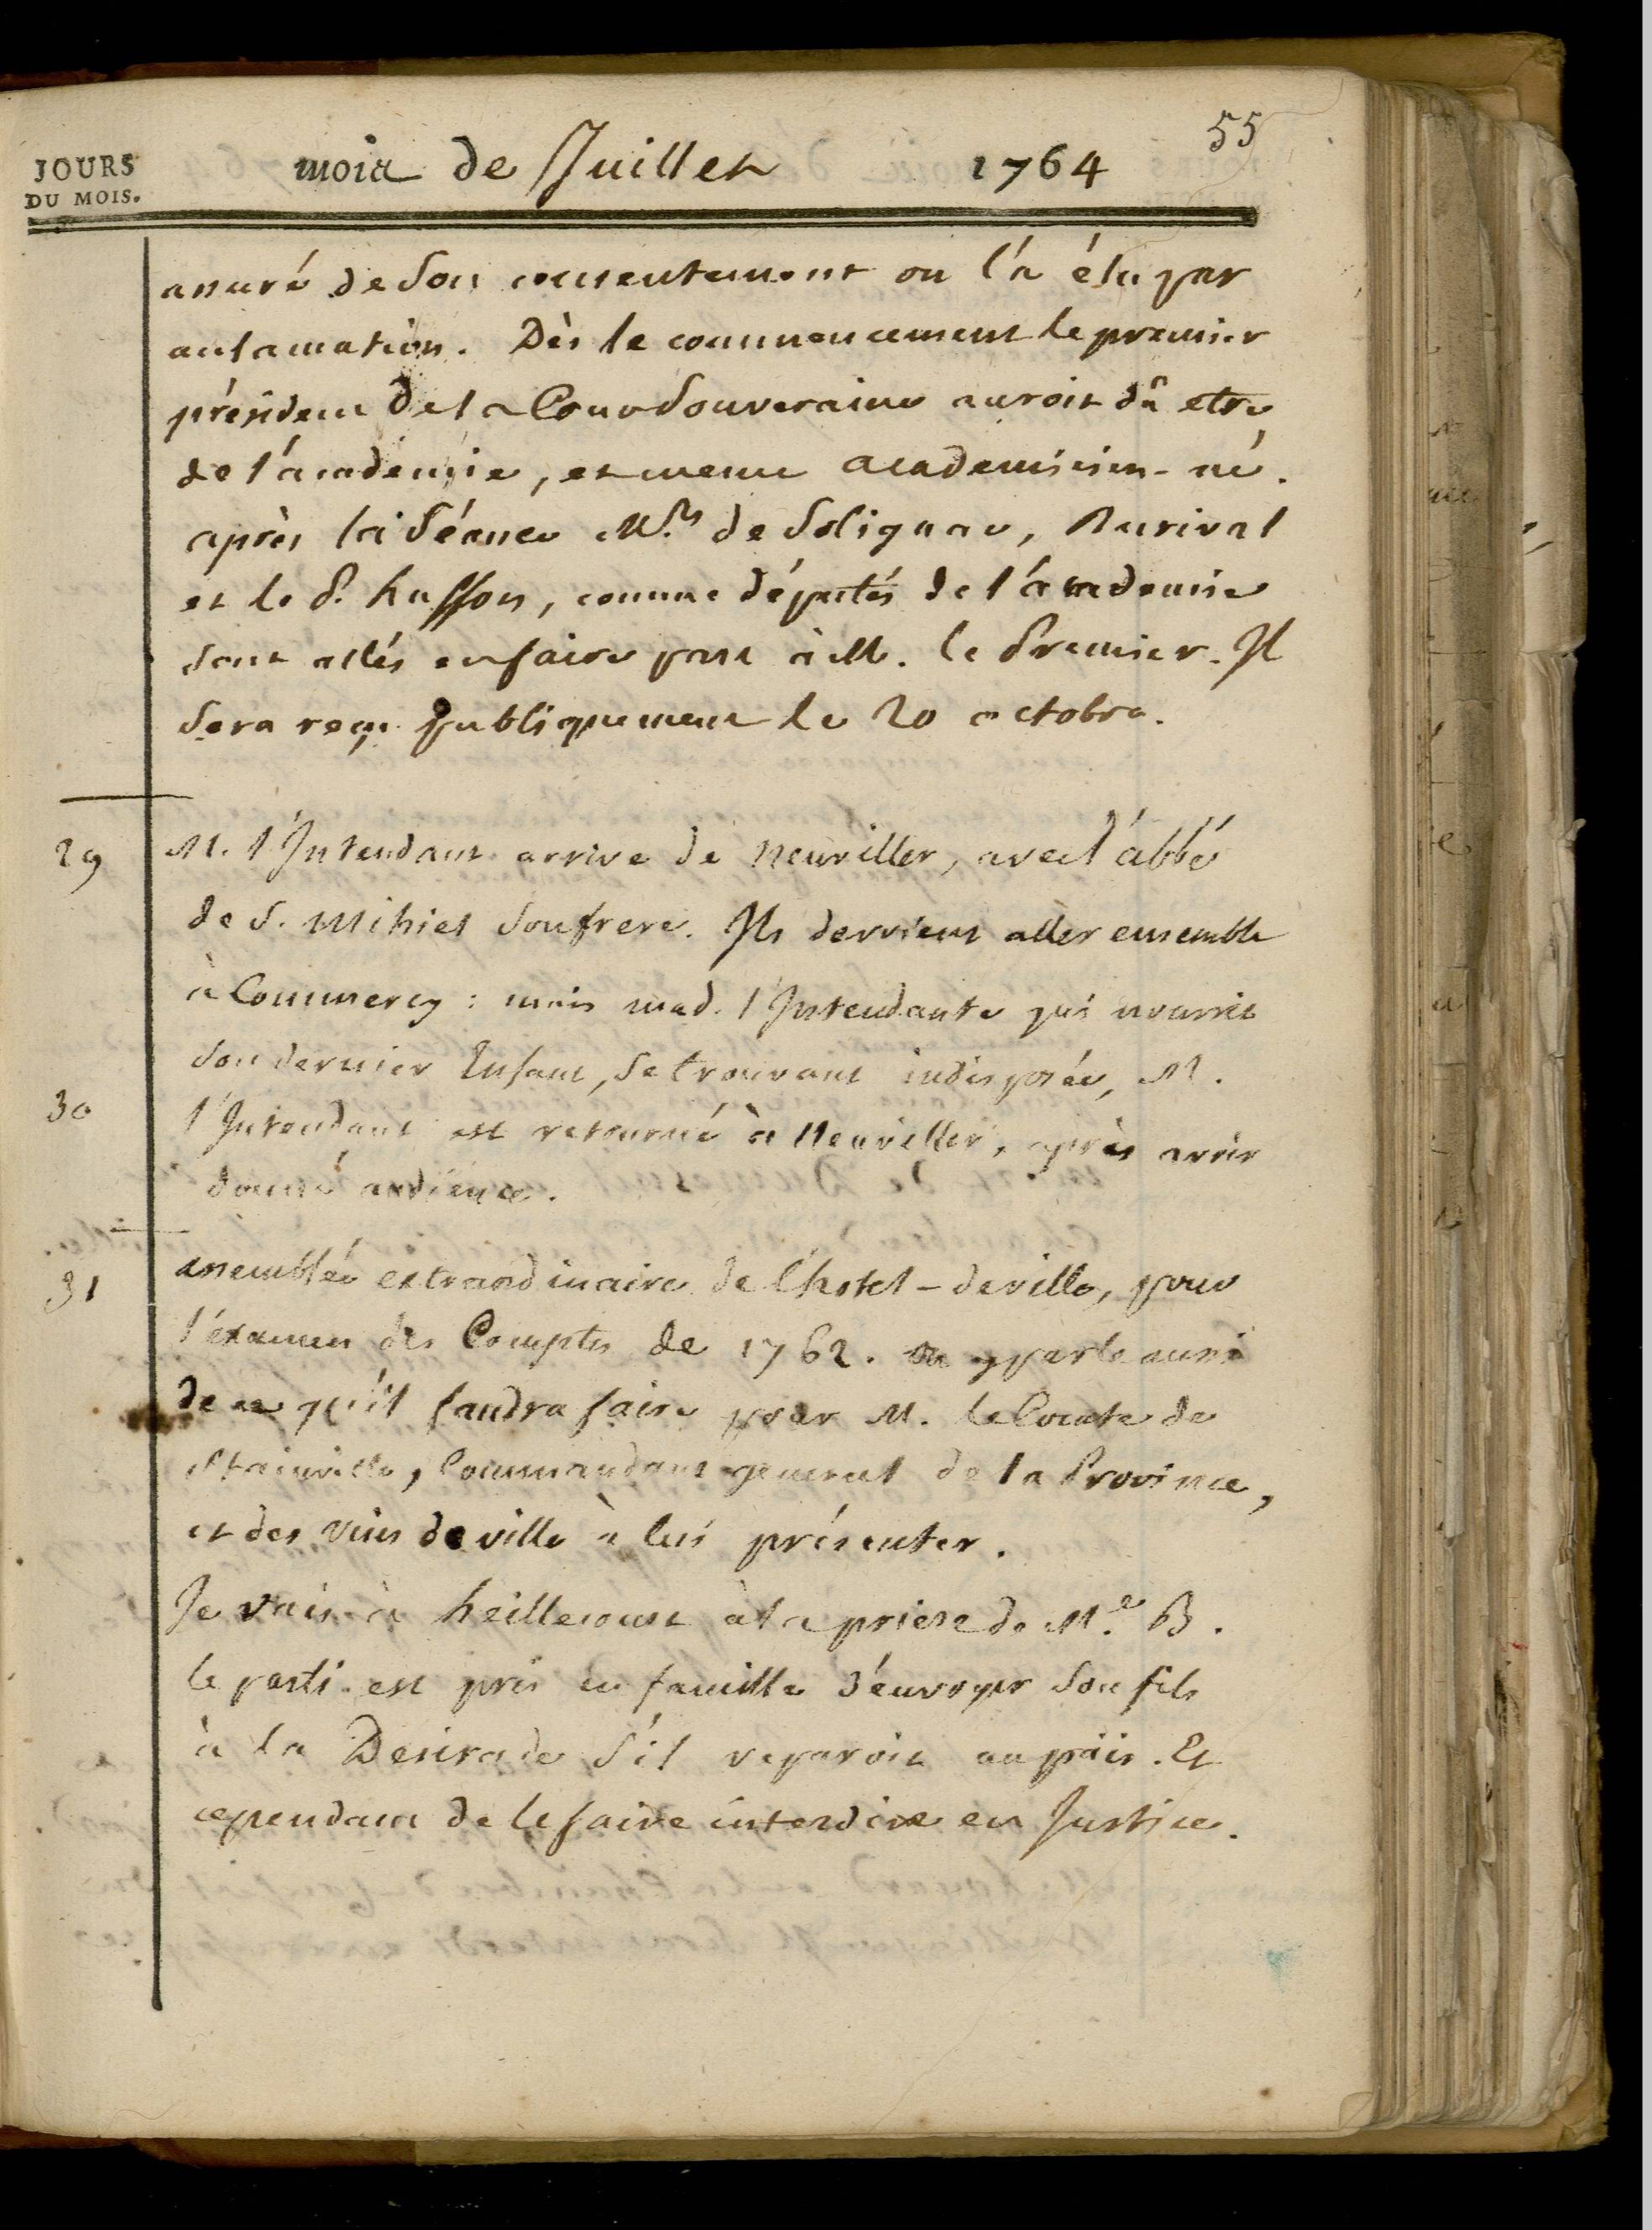 55
JOURS
DU MOIS.
mois de Juillet 1764
assuré de son consentement on l'a élu par
acclamation. Dès le commencement le premier
président de la Cour Souveraine auroit dû etre
de l'académie, et meme academicien-né.
après la séance Mrs de Solignac, Durival
et le S. husson, comme députés de l'academie
sont allés en faire part à M. le Premier. Il
sera reçu publiquement le 20 octobre.
29 M. l'Intendant arrive de Neuviller, avec l'abbé
de S. Mihiel son frere. Ils devoient aller ensemble
à Commercy : mais mad. l'Intendante qui nourrit
son dernier Enfant, se trouvant indisposée, M.
30 l'Intendant est retourné à Neuviller, après avoir
donné audience.
31 assemblée extraordinaire de l'hotel-de ville, pour
l'examen des Comptes de 1762. on y parle aussi
de ce qu'il faudra faire pour M. le Comte de
Stainville, Commandant general de la Province,
et des vins de ville à lui présenter.
Je vais à heillecourt à la priere de Me. B.
le parti est pris en famille d'envoyer son fils
à la Desirade s'il reparoit au païs. Et
cependant de le faire interdire en Justice.